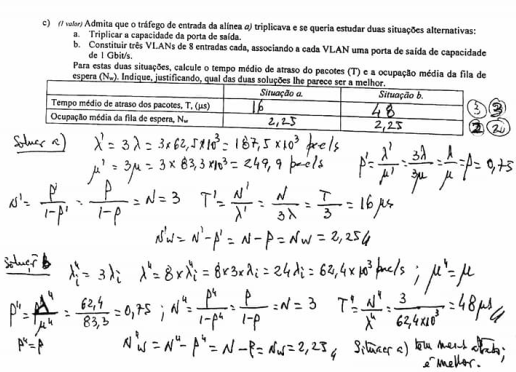 c) (1 valor) Admita que o tráfego de entrada da alínea a) triplicava e se queria estudar duas situações alternativas:
a. Triplicar a capacidade da porta de saída.
b. Constituir três VLANs de 8 entradas cada, associando a cada VLAN uma porta de saída de capacidade
de 1 Gbit/s.
Para estas duas situações, calcule o tempo médio de atraso do pacotes (T) e a ocupação média da fila de
espera (Nw). Indique, justificando, qual das duas soluções lhe parece ser a melhor.
Situação a. Situação b.
Tempo médio de atraso dos pacotes, T, (μs) 16 48
Ocupação média da fila de espera, Nw 2,25 2,25
λ' = 3λ = 3×62,5×10³ = 187,5×10³ pac/s
μ' = 3μ = 3×83,3×10³ = 249,9 pac/s
ρ' = λ'/μ' = 3λ/3μ = λ/μ = ρ = 0,75
N' = ρ'/(1-ρ') = ρ/(1-ρ) = N = 3 T' = N'/λ' = N/3λ = T/3 = 16 μs
N'w = N'-ρ' = N-ρ = Nw = 2,25
λ"i = 3λi λ" = 8×λ"i = 8×3×λi = 24λi = 62,4×10³ pac/s ; μ" = μ
ρ" = λ"/μ" = 62,4/83,3 = 0,75 ; N" = ρ"/(1-ρ") = ρ/(1-ρ) = N = 3 T" = N"/λ" = 3/62,4×10³ = 48 μs
ρ" = ρ N"w = N"-ρ" = N-ρ = Nw = 2,25 Situação a) tem menos atraso;
é melhor.